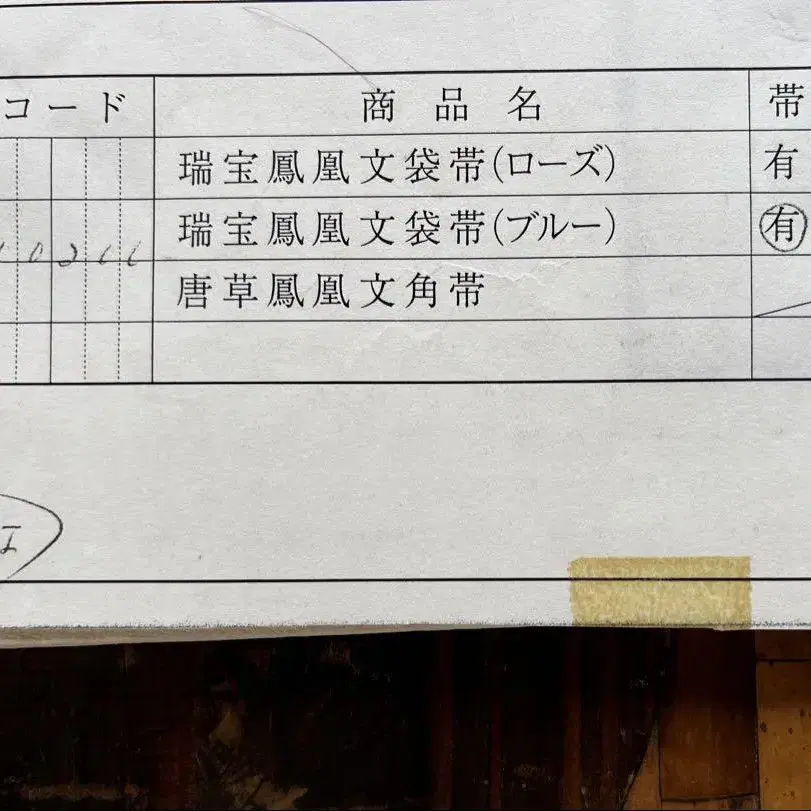 コード 商品名 帯
瑞宝鳳凰文袋帯(ローズ) 有
瑞宝鳳凰文袋帯(ブルー) 有
唐草鳳凰文角帯